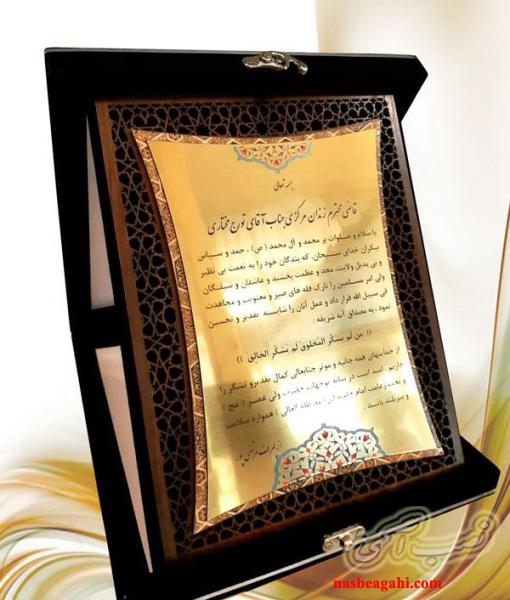 بسمه تعالی
قاضی محترم زندان مرکزی جناب آقای تورج مختاری
با سلام و صلوات بر محمد و آل محمد (ص) ، حمد و سپاس
بیکران خدای سبحان، که بندگان خود را به نعمت بی نظیر
و بی بدیل ولایت، مجد و عظمت بخشید و عاشقان و شیفتگان
ولی امر مسلمین را تارک قله های صبر و معنویت و مجاهدت
فی سبیل الله قرار داد و عمل آنان را شایسته تقدیر و تحسین
نمود ، به مصداق آیه شریفه :
(( مَن لَم یَشکُرِ المَخلوق لَم یَشکُرِ الخالِق ))
از حمایتهای همه جانبه و موثر جنابعالی کمال تقدیر و تشکر را
داریم . امید است در سایه توجهات حضرت ولی عصر ( عج )
و تحت زعامت امام خامنه ای ( مد ظله العالی ) همواره سلامت
و سربلند باشید .
از طرف
نصب آگهی
nasbeagahi.com